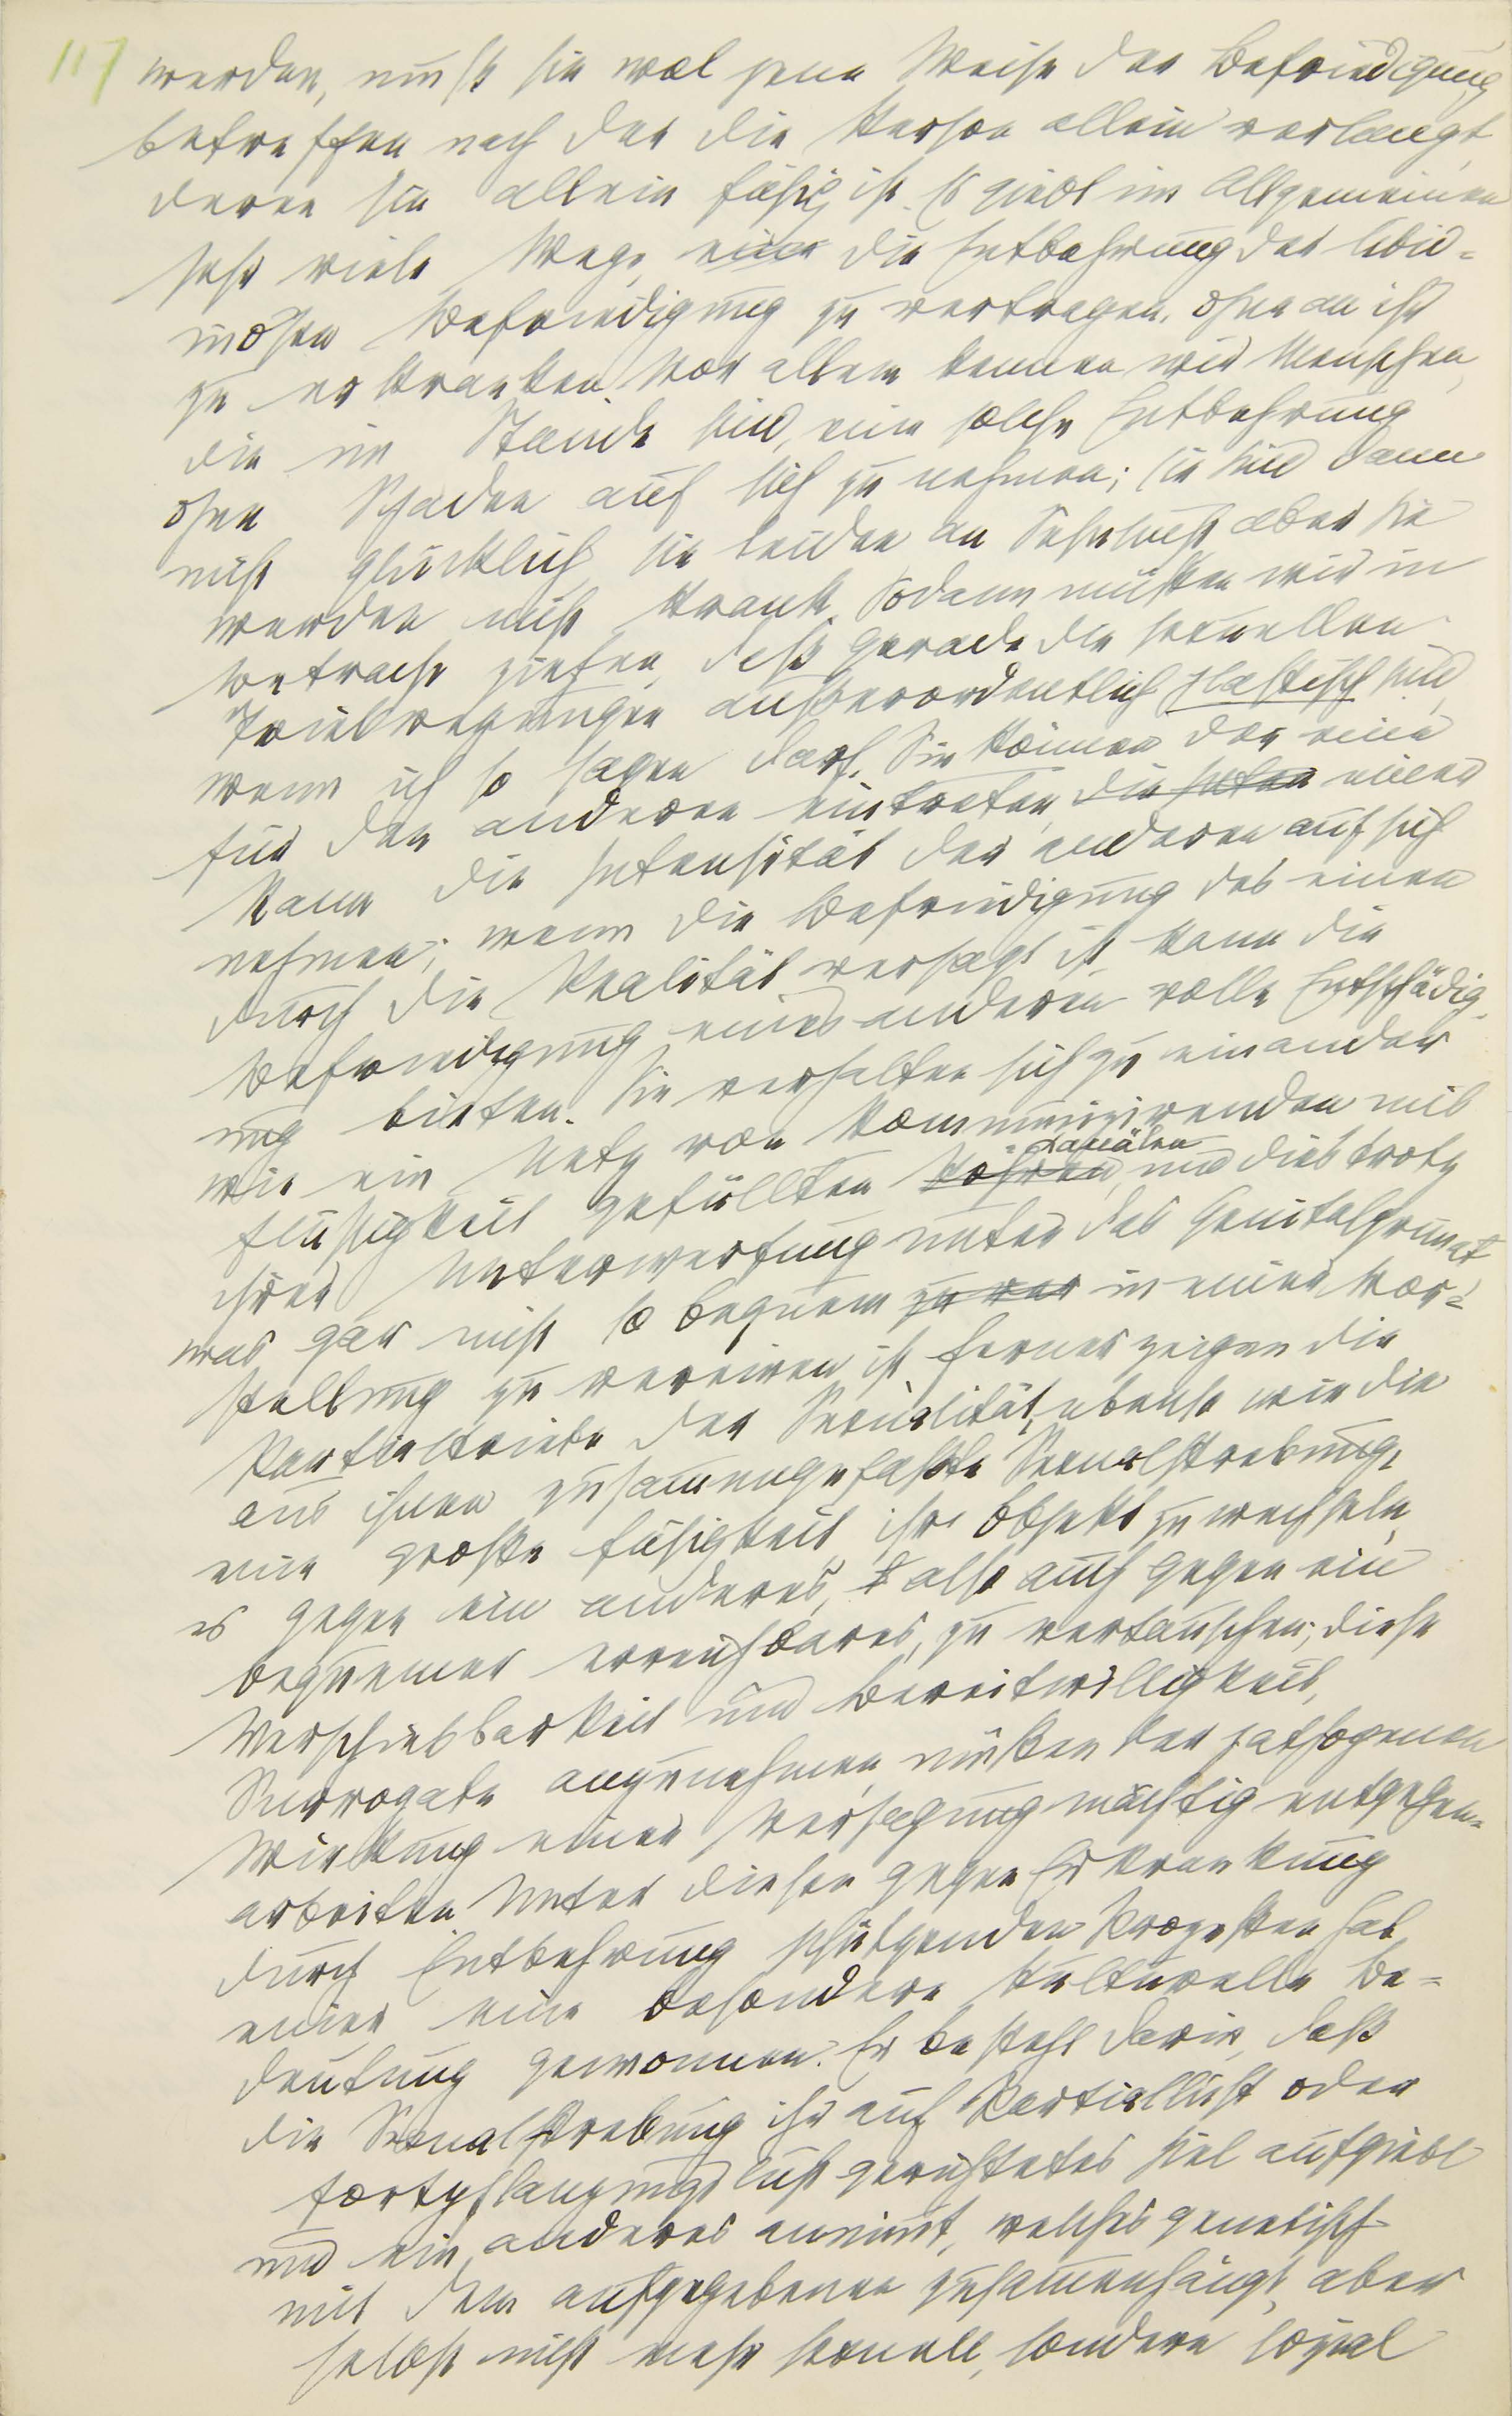 117
werden, muß sie wol jene Weise der Befriedigung
betreffen nach der die Person allein verlangt,
deren sie allein fähig ist. Es giebt im Allgemeinen
sehr viele Wege, eine die Entbehrung der libid-
inösen Befriedigung zu vertragen, ohne an ihr
zu erkranken. Vor allem kennen wir Menschen,
die im Stande sind, eine solche Entbehrung
ohne Schaden auf sich zu nehmen; sie sind dann
nicht glücklich, sie leiden an Sehnsucht aber sie
werden nicht krank. Sodann müßen wir in
Betracht ziehen, daß gerade die sexuellen
Triebregungen außerordentlich plastisch sind,
wenn ich so sagen darf. Sie können die eine
für die andere eintreten, die Inten eine
kann die Intensität der anderen auf sich
nehmen; wenn die Befriedigung der einen
durch die Realität versagt ist kann die
Befriedigung einer anderen volle Entschädig-
ung bieten. Sie verhalten sich zu einander
wie ein Netz von kommunizirenden mit
Kanälen
Flüßigkeit gefüllten Röhren, und dies trotz
ihrer Unterwerfung unter das Genitalprimat
was gar nicht so bequem zu ver in einer Vor-
stellung zu vereinen ist. Ferner zeigen die
Partialtriebe der Sexualität, ebenso wie die
aus ihnen zusammengefaßte Sexualstrebung,
eine große Fähigkeit ihr Objekt zu wechseln,
es gegen ein anderes, also auch gegen ein
bequemer erreichbares, zu vertauschen; diese
Verschiebbarkeit und Bereitwilligkeit,
Surrogate anzunehmen, müßen der pathogenen
Wirkung einer Versagung mächtig entgegen-
arbeiten. Unter diesen gegen Erkrankung
durch Entbehrung schützenden Prozeßen hat
einer eine besondere kulturelle Be-
deutung gewonnen. Er besteht darin, daß
die Sexualstrebung ihr auf Partiallust oder
Fortpflanzungslust gerichtetes Ziel aufgiebt
und ein anderes annimt, welches genetisch
mit dem aufgegebenen zusammenhängt, aber
selbst nicht mehr sexuell, sondern sozial